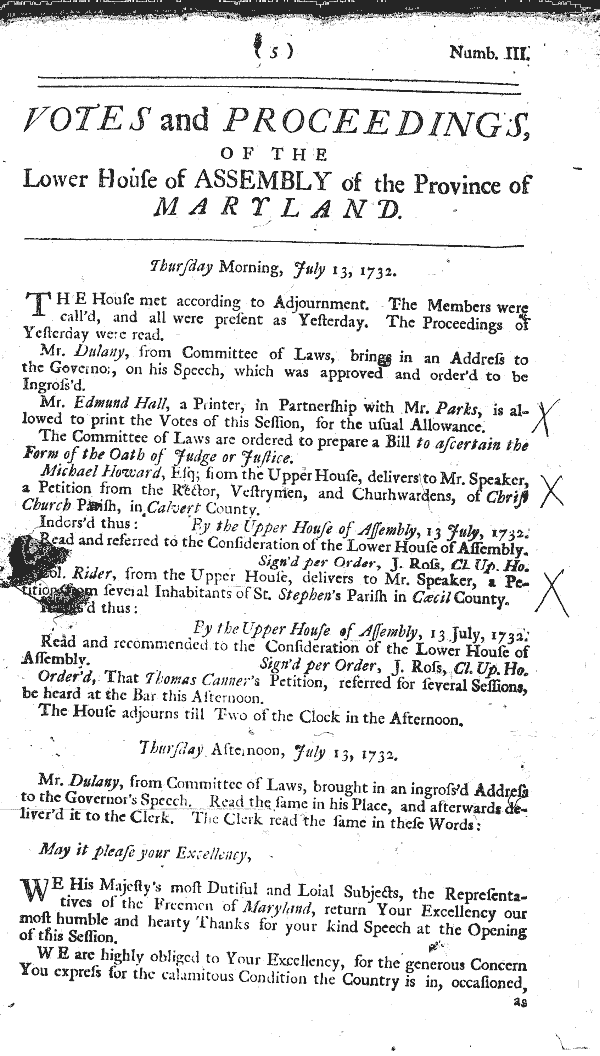 ( 5 ) Numb. III.
VOTES and PROCEEDINGS,
OF THE
Lower Houſe of ASSEMBLY of the Province of
MARYLAND.
Thurſday Morning, July 13, 1732.
THE Houſe met according to Adjournment. The Members were
call'd, and all were preſent as Yeſterday. The Proceedings of
Yeſterday were read.
Mr. Dulany, from Committee of Laws, brings in an Addreſs to
the Governor, on his Speech, which was approved and order'd to be
Ingroſs'd.
Mr. Edmund Hall, a Printer, in Partnerſhip with Mr. Parks, is al-
lowed to print the Votes of this Seſſion, for the uſual Allowance.
The Committee of Laws are ordered to prepare a Bill to aſcertain the
Form of the Oath of Judge or Juſtice.
Michael Howard, Eſq; from the Upper Houſe, delivers to Mr. Speaker,
a Petition from the Rector, Veſtrymen, and Churhwardens, of Chriſt
Church Pariſh, in Calvert County.
Indors'd thus: By the Upper Houſe of Aſſembly, 13 July, 1732.
Read and referred to the Conſideration of the Lower Houſe of Aſſembly.
Sign'd per Order, J. Roſs, Cl. Up. Ho.
Col. Rider, from the Upper Houſe, delivers to Mr. Speaker, a Pe-
tition from ſeveral Inhabitants of St. Stephen's Pariſh in Cæcil County.
thus:
By the Upper Houſe of Aſſembly, 13 July, 1732.
Read and recommended to the Conſideration of the Lower Houſe of
Aſſembly. Sign'd per Order, J. Roſs, Cl. Up. Ho.
Order'd, That Thomas Canner's Petition, referred for ſeveral Seſſions,
be heard at the Bar this Afternoon.
The Houſe adjourns till Two of the Clock in the Afternoon.
Thurſday Afternoon, July 13, 1732.
Mr. Dulany, from Committee of Laws, brought in an ingroſs'd Addreſs
to the Governor's Speech. Read the ſame in his Place, and afterwards de-
liver'd it to the Clerk. The Clerk read the ſame in theſe Words:
May it pleaſe your Excellency,
WE His Majeſty's moſt Dutiful and Loial Subjects, the Repreſenta-
tives of the Freemen of Maryland, return Your Excellency our
moſt humble and hearty Thanks for your kind Speech at the Opening
of this Seſſion.
WE are highly obliged to Your Excellency, for the generous Concern
You expreſs for the calamitous Condition the Country is in, occaſioned,
as